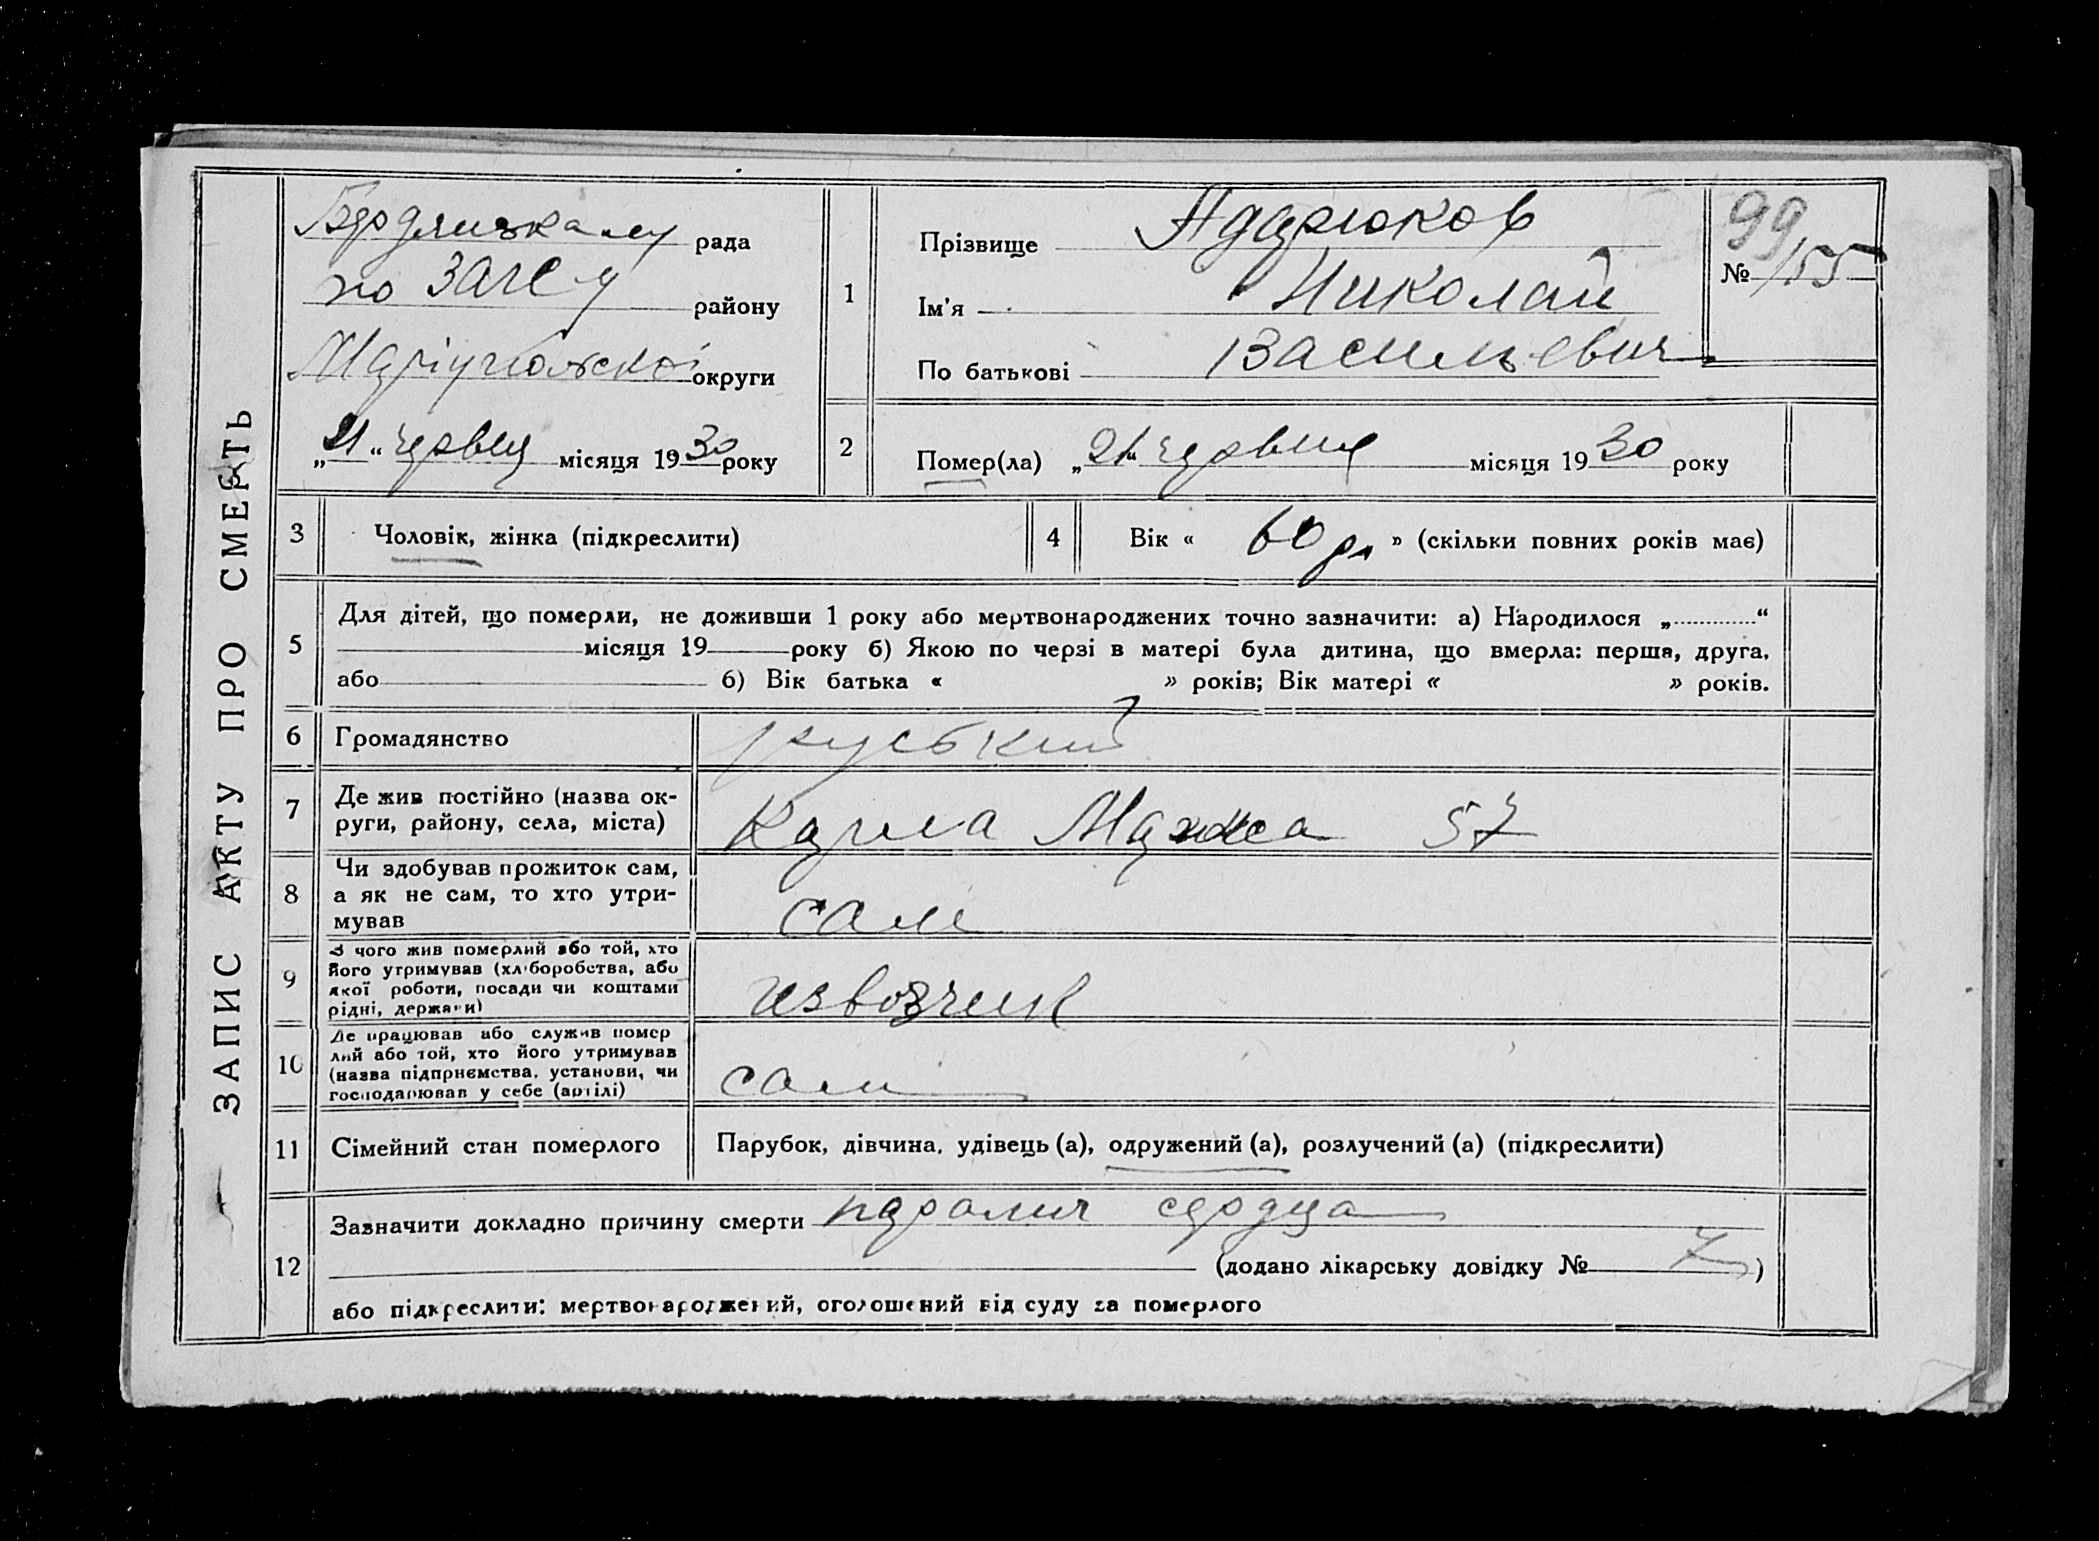 ЗАПИС АКТУ ПРО СМЕРТЬ
Бердянському рада
по ЗАГСУ району
Маріупольской округи
„21“ червця місяця 1930 року
1
Прізвище Адарюков
Ім'я Николай
По батькові Васильевич
99
№ 155
2
Помер(ла) „21“ червця місяця 1930 року
3 Чоловік, жінка (підкреслити)
4 Вік « 60 р. » (скільки повних років має)
5
Для дітей, що померли, не доживши 1 року або мертвонароджених точно зазначити: а) Народилося „............“
місяця 19 року б) Якою по черзі в матері була дитина, що вмерла: перша, друга,
або 6) Вік батька « » років; Вік матері « » років.
6 Громадянство руський
7 Де жив постійно (назва ок-
руги, району, села, міста)
Карла Маркса 57
8 Чи здобував прожиток сам,
а як не сам, то хто утри-
мував
сам
9 З чого жив померлий або той, хто
його утримував (хліборобства, або
якої роботи, посади чи коштами
рідні, держави)
извозчик
10 Де працював або служив помер
лий або той, хто його утримував
(назва підприємства, установи, чи
господарював у себе (артілі)
сам
11 Сімейний стан померлого
Парубок, дівчина, удівець (а), одружений (а), розлучений (а) (підкреслити)
12
Зазначити докладно причину смерти паралич сердца
(додано лікарську довідку № 7)
або підкреслити: мертвонароджений, оголошений від суду за померлого